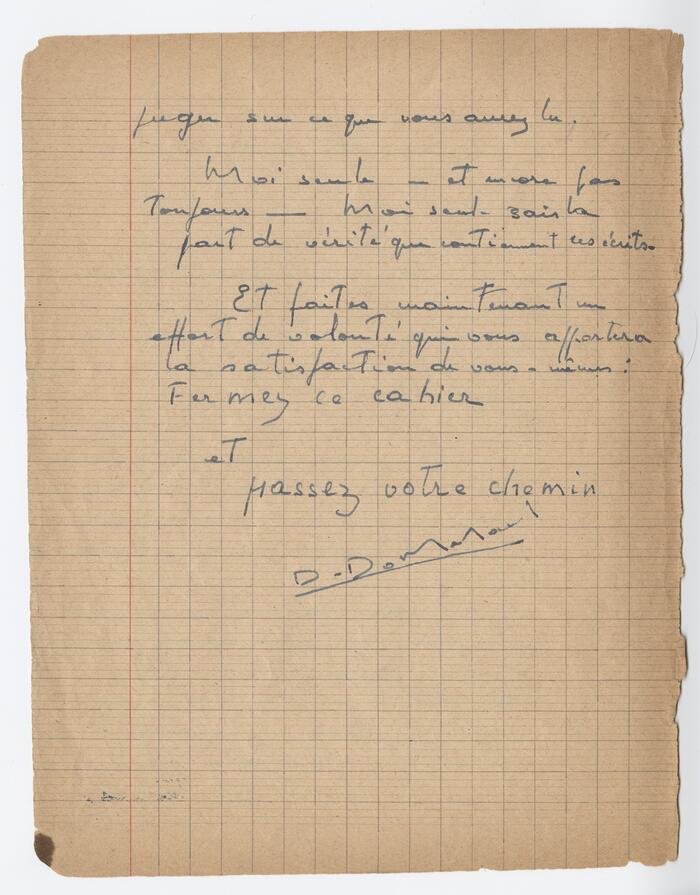 juger sur ce que vous aurez lu.
Moi seule — et encore pas
Toujours — Moi seule sais la
part de vérité que contiennent ces écrits.
Et faites maintenant un
effort de volonté qui vous apportera
la satisfaction de vous-mêmes :
Fermez ce cahier
et
passez votre chemin